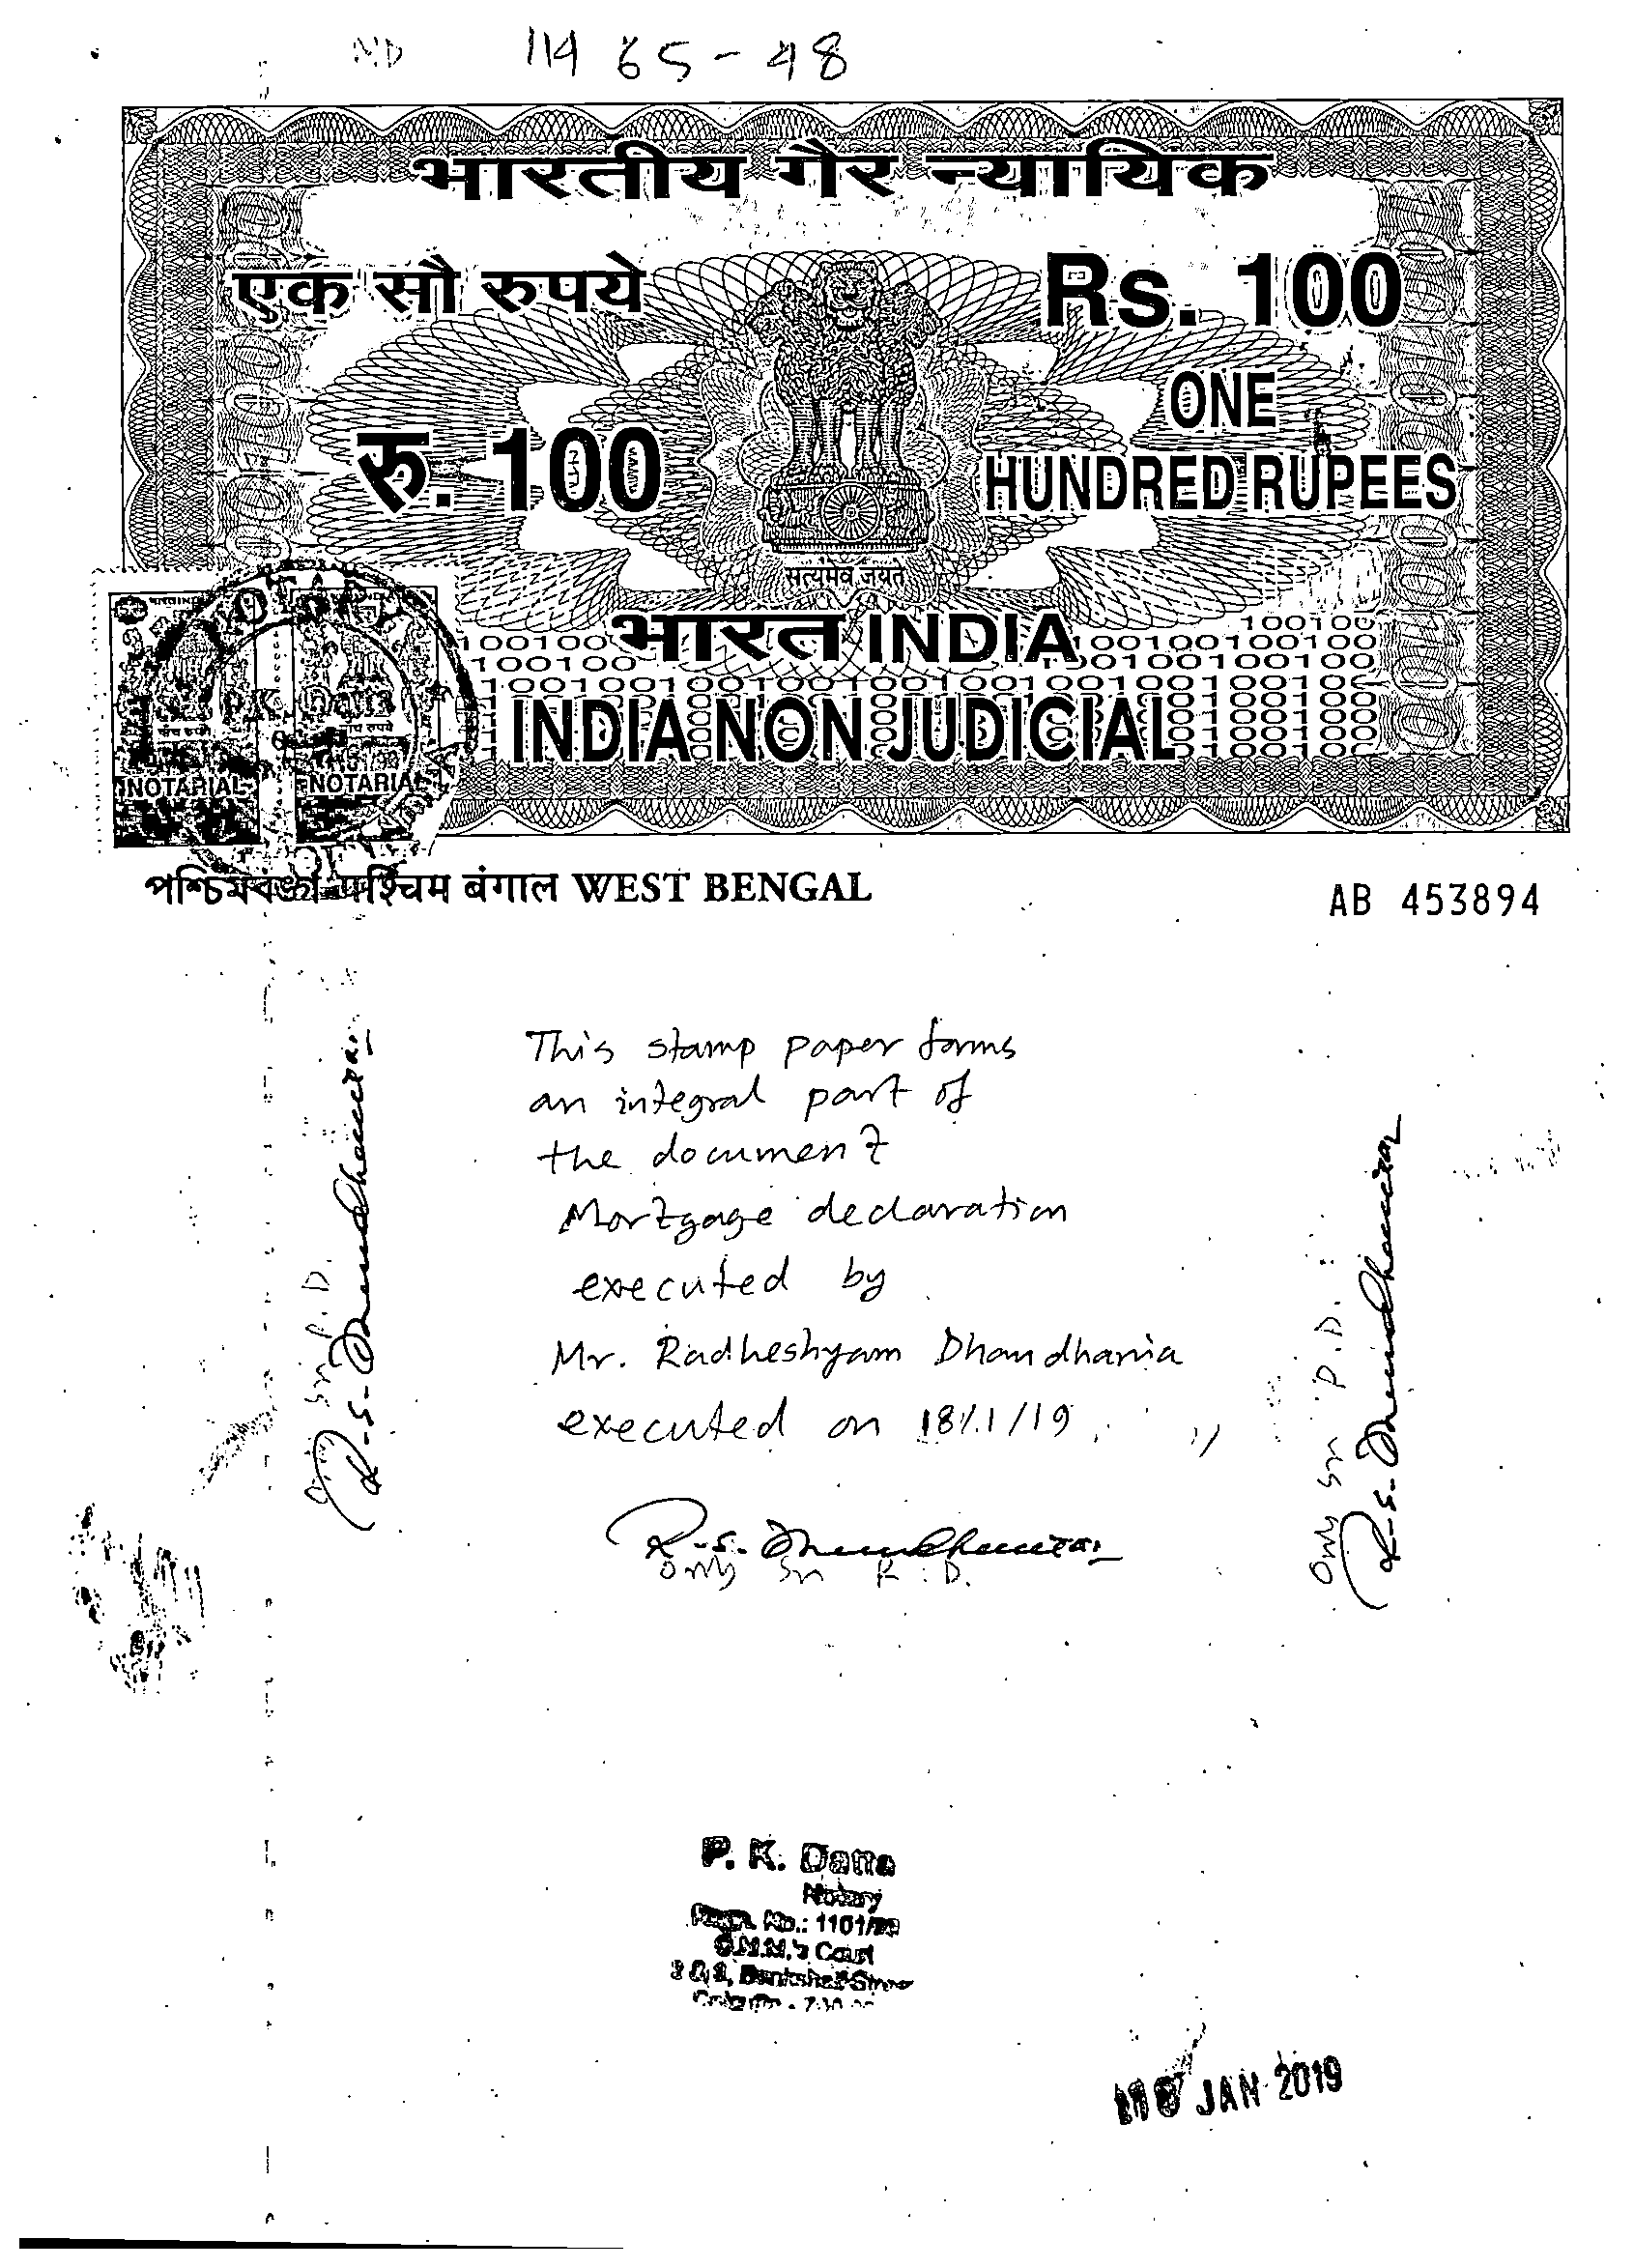 1465-48
भारतीय गैर न्यायिक
एक सौ रुपये
Rs. 100
रु. 100
ONE
HUNDRED RUPEES
सत्यमेव जयते
भारत INDIA
INDIA NON JUDICIAL
NOTARIAL
NOTARIAL
পশ্চিমবঙ্গ पश्चिम बंगाल WEST BENGAL
AB 453894
This stamp paper forms
an integral part of
the document
Mortgage declaration
executed by
Mr. Radheshyam Dhandhania
executed on 18/1/19.
R.S. Dhandhania
only sn R.D.
R.S. Dhandhania
P.D.
R.S. Dhandhania
only sn P.D.
P. K. Datta
Notary
Regn. No.: 1101/
C.M.M.'s Court
2 & 3, Bankshall Street
18 JAN 2019